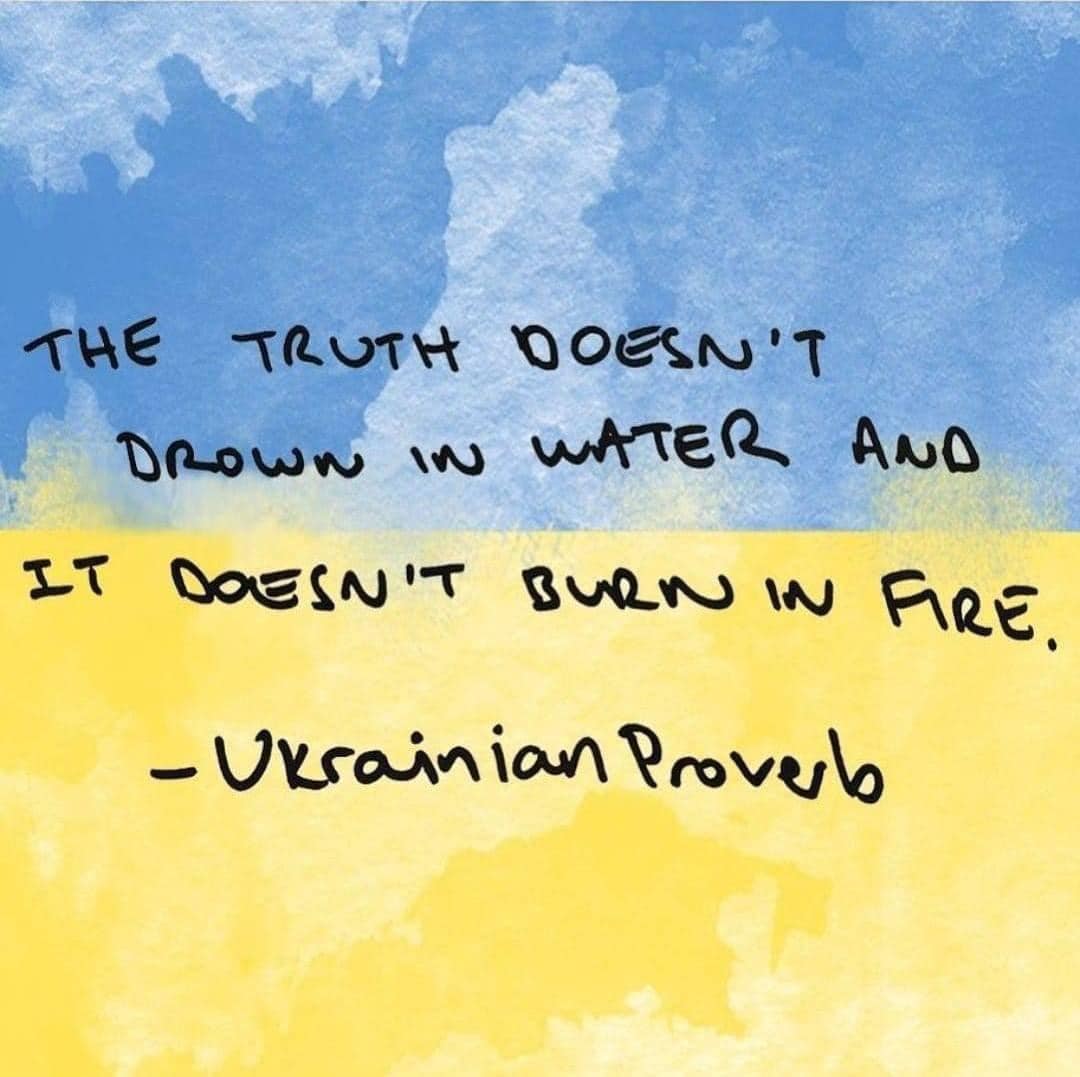 THE TRUTH DOESN'T
DROWN IN WATER AND
IT DOESN'T BURN IN FIRE.
- Ukrainian Proverb